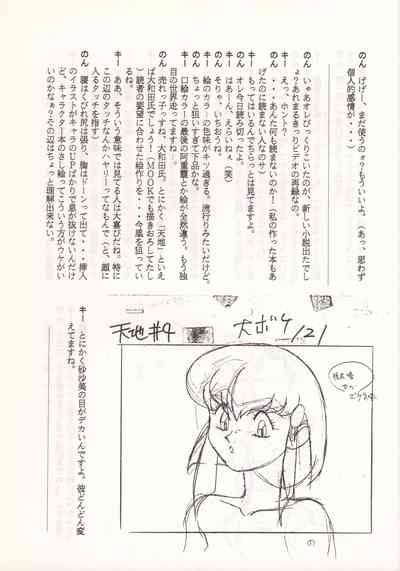 のん　げげー、まだ使うのォ？もういいよ。（あっ、思わず
個人的感情が・・・）
のん　いやあオレびっくりこいたのが、新しい小説出たでし
ょ？あれまるきりビデオの再録なの。
キー　えっ、ホント？
のん　・・・あんた何も読まないのか！（私の作った本もあ
げたのに読まない人なのサ）
キー　もってはいるんでちらっとは見てますよ。
のん　オレ今日読みきったでよ。
キー　はあーん、えらいねぇ（笑）
のん　そりゃ、いちおうね。
キー　絵のカラーの色味がキツ過ぎる、流行りみたいだけど。
ちょっと狙いすぎて下品かな。
のん　口絵カラーの最後の魎皇鬼とか絵柄全然違う。もう独
自の世界走ってますね。
キー　売れっ子っすね、大和田氏。とにかく「天地」といえ
ば大和田氏でしょう！（MOOKでも描きおろしてたし
）読者の要望に合わせた絵作りを・・・今風を狙ってい
るね。
キー　ああ、そういう意味では見てる人は大喜びだね。特に
この辺のタッチなんかハヤリーってなもんで（と、顔に
入るタッチを指す）
のん　腰はくびれ尻は張り、胸はドーンって出て・・・挿入
のイラストがキャラのUPばかりで息が抜けないんだけ
ど、キャラクター本のさし絵ってこういう方がウケがい
いのかなぁ？その辺はちょっと理解出来ない。
天地#4
大ボケ
121
キー　とにかく砂沙美の目がデカいんですよ。彼どんどん変
えてますね。